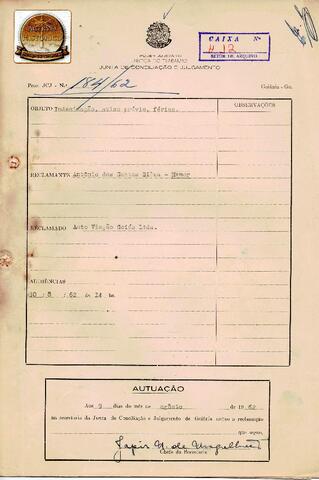 PODER JUDICIÁRIO
JUSTIÇA DO TRABALHO
JUNTA DE CONCILIAÇÃO E JULGAMENTO
CAIXA Nº
412
SETOR DE ARQUIVO
Proc. JCJ - N.º 184/62
Goiânia - Go.
OBJETO Indenização, aviso prévio, férias.
OBSERVAÇÕES
RECLAMANTE Antônio dos Santos Silva - Menor
RECLAMADO Auto Viação Goiás Ltda.
AUDIÊNCIAS
às 14 hs.
AUTUAÇÃO
Aos 9 dias do mês de agôsto de 1962
na secretaria da Junta de Conciliação e Julgamento de Goiânia autuo a reclamação
que segue.
Chefe da Secretaria